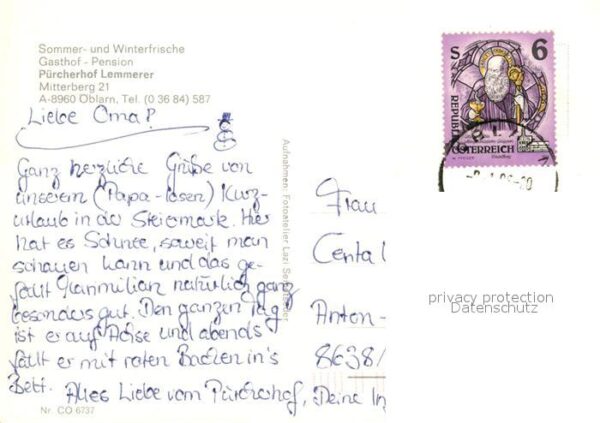 Sommer- und Winterfrische
Gasthof - Pension
Pürcherhof Lemmerer
Mitterberg 21
A-8960 Öblarn, Tel. (0 36 84) 587
Liebe Oma!
Ganz herzliche Grüße von
unserem (Papa-losen) Kurz-
urlaub in der Steiermark. Hier
hat es Schnee, soweit man
schauen kann und das ge-
fällt Maximilian natürlich ganz
besonders gut. Den ganzen Tag
ist er auf Achse und abends
fällt er mit roten Backen in's
Bett. Alles Liebe vom Pürcherhof, Deine
Nr. CO 6737
Aufnahmen: Fotoatelier Lazi
S 6
REPUBLIK
ÖSTERREICH
Frau
Anton-
8638/
privacy protection
Datenschutz